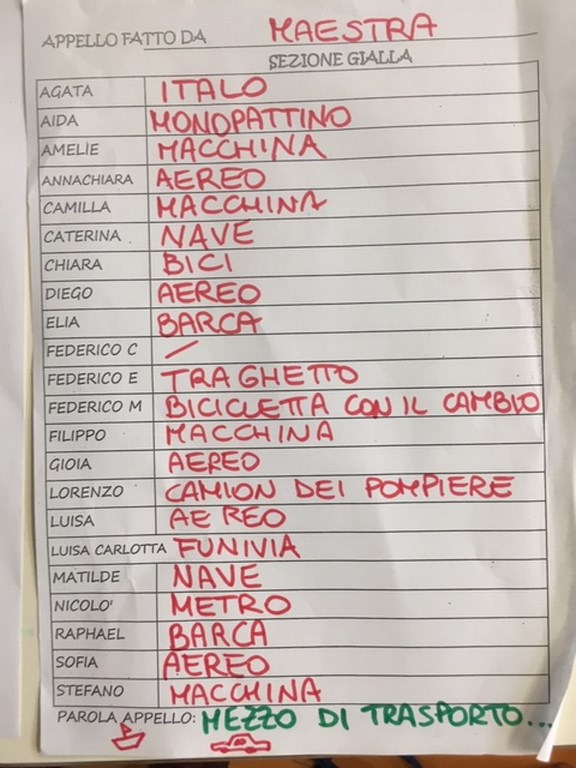 APPELLO FATTO DA MAESTRA
SEZIONE GIALLA
AGATA ITALO
AIDA MONOPATTINO
AMELIE MACCHINA
ANNACHIARA AEREO
CAMILLA MACCHINA
CATERINA NAVE
CHIARA BICI
DIEGO AEREO
ELIA BARCA
FEDERICO C /
FEDERICO E TRAGHETTO
FEDERICO M BICICLETTA CON IL CAMBIO
FILIPPO MACCHINA
GIOIA AEREO
LORENZO CAMION DEI POMPIERE
LUISA AEREO
LUISA CARLOTTA FUNIVIA
MATILDE NAVE
NICOLO' METRO
RAPHAEL BARCA
SOFIA AEREO
STEFANO MACCHINA
PAROLA APPELLO: MEZZO DI TRASPORTO...